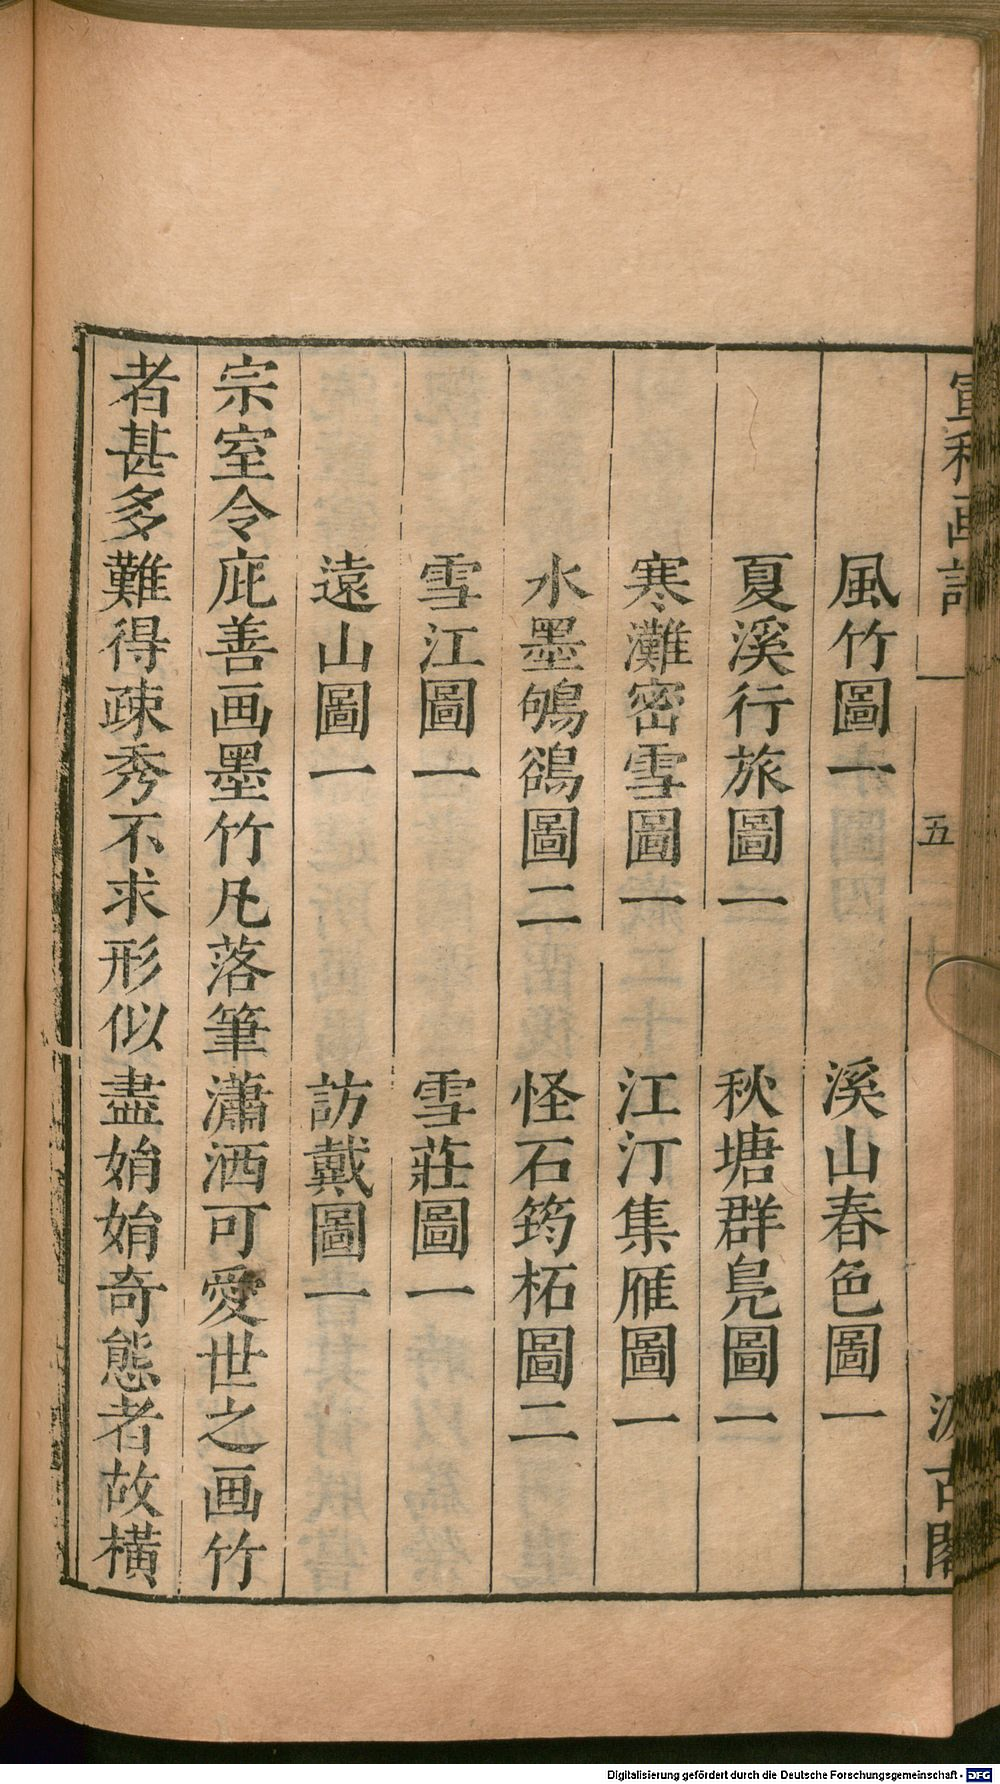 宣和画譜 五 汲古閣
風竹圖一 溪山春色圖一
夏溪行旅圖二 秋塘群鳬圖二
寒灘密雪圖一 江汀集雁圖一
水墨鴝鵒圖二 怪石筠柘圖二
雪江圖一 雪莊圖一
遠山圖一 訪戴圖一
宗室令庇善画墨竹凡落筆瀟洒可愛世之画竹
者甚多難得疎秀不求形似盡娋娋奇態者故橫
Digitalisierung gefördert durch die Deutsche Forschungsgemeinschaft - DFG